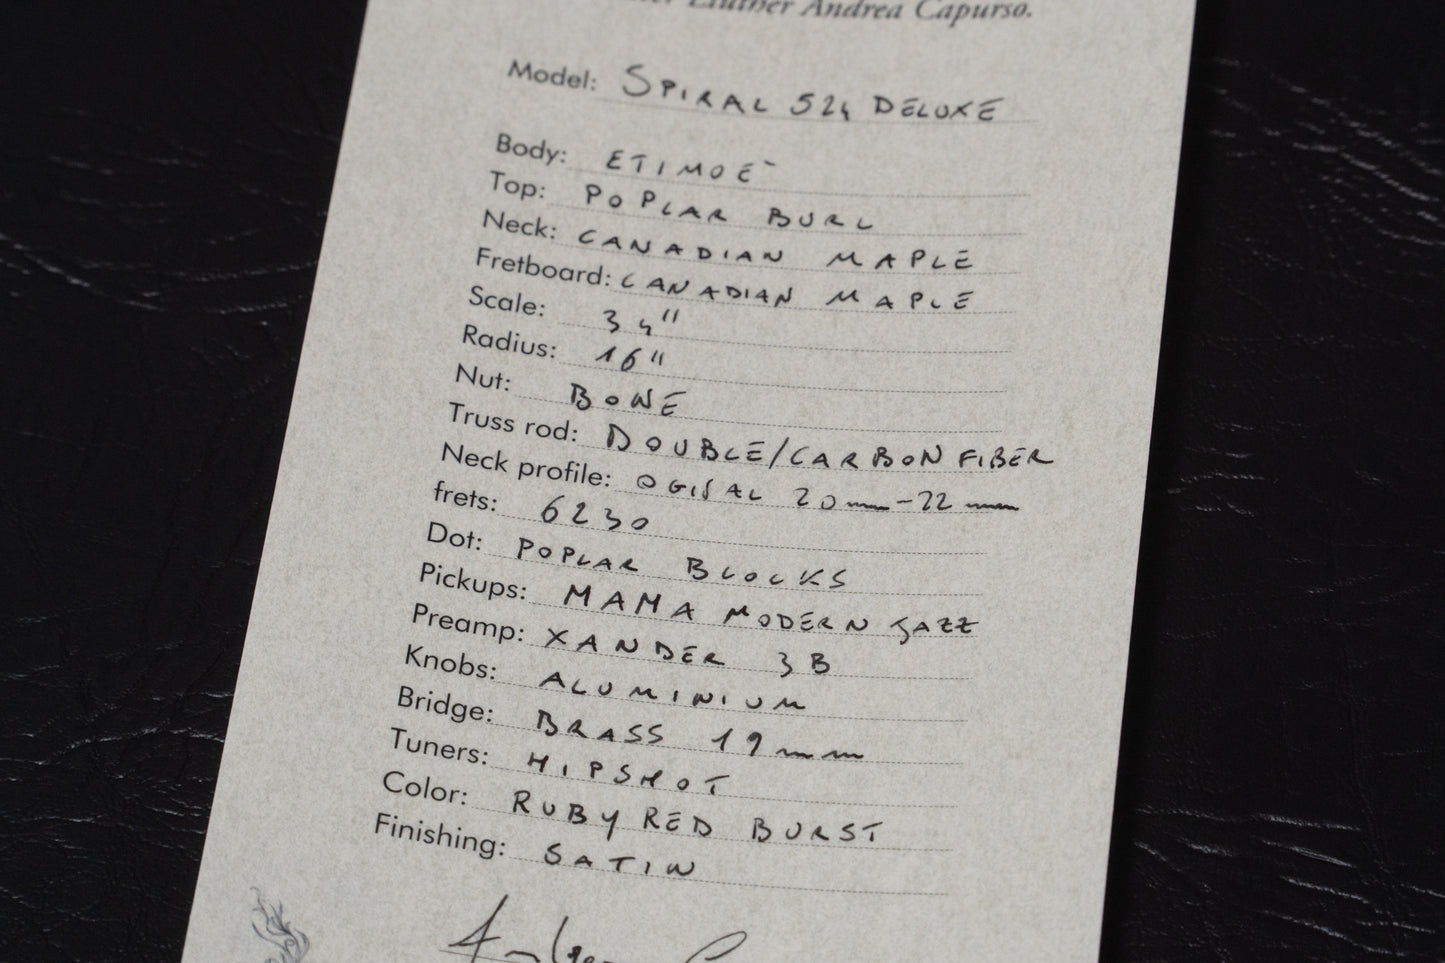 Andrea Capurso.
Model: SPIRAL 524 DELUXE
Body: ETIMOE`
Top: POPLAR BURL
Neck: CANADIAN MAPLE
Fretboard: CANADIAN MAPLE
Scale: 34"
Radius: 16"
Nut: BONE
Truss rod: DOUBLE/CARBON FIBER
Neck profile: 20mm-22mm
frets: 6230
Dot: POPLAR BLOCKS
Pickups: MAMA MODERN JAZZ
Preamp: XANDER 3B
Knobs: ALUMINIUM
Bridge: BRASS 19mm
Tuners: HIPSHOT
Color: RUBY RED BURST
Finishing: SATIN